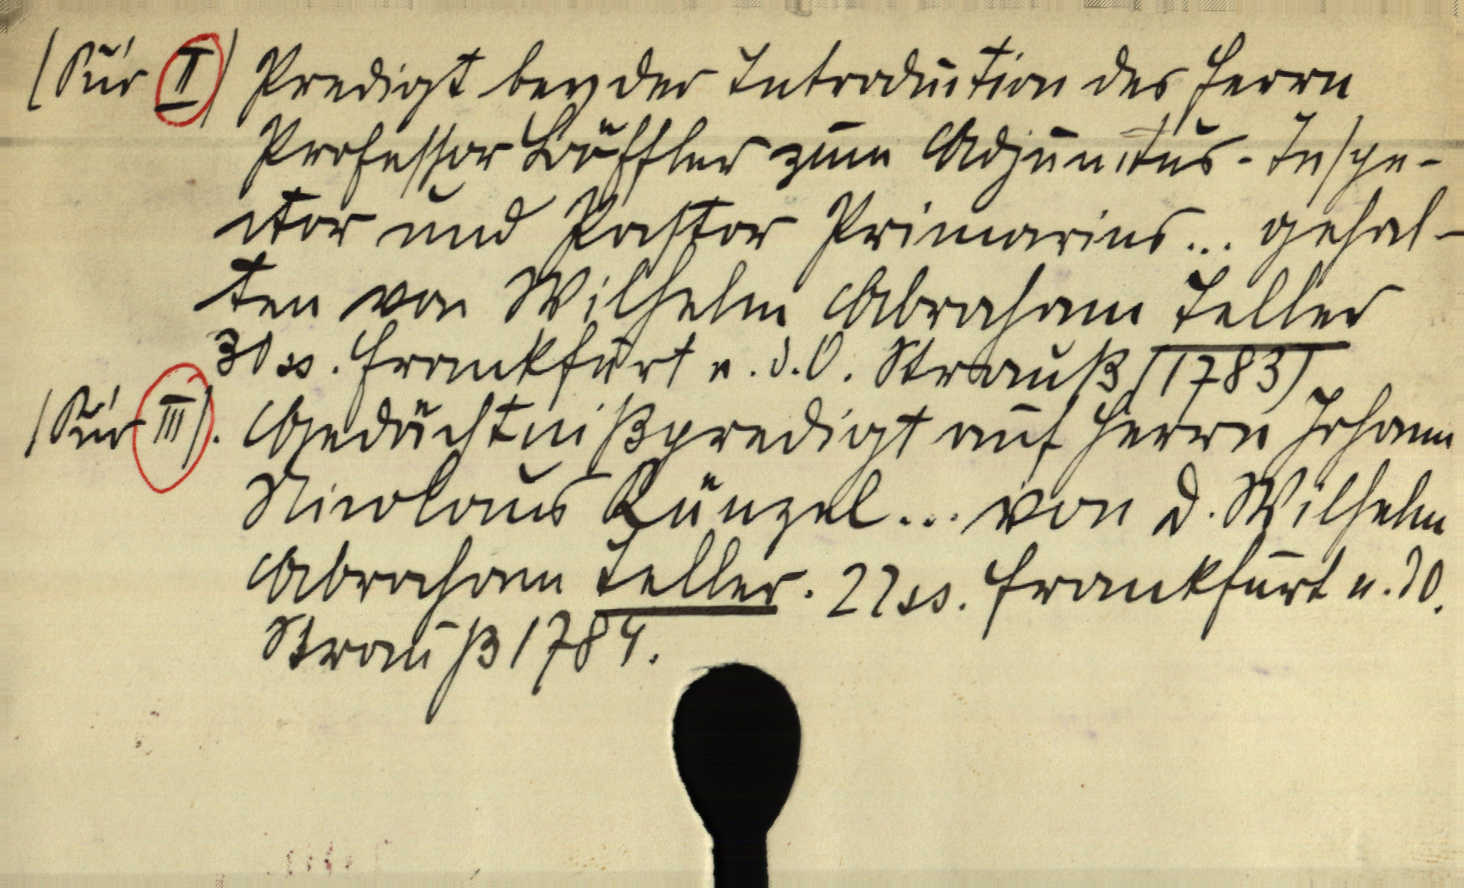 (Für II) Predigt bey der Introduction des Herrn
Professor Löffler zum Adjunctus-Inspe-
ctor und Pastor Primarius... gehal-
ten von Wilhelm Abraham Teller
30 ss. Frankfurt a. d. O. Strauß (1783)
(Für III). Gedächtnißpredigt auf Herrn Johann
Nicolaus Künzel... von D. Wilhelm
Abraham Teller. 22 ss. Frankfurt a. d O.
Strauß 1784.